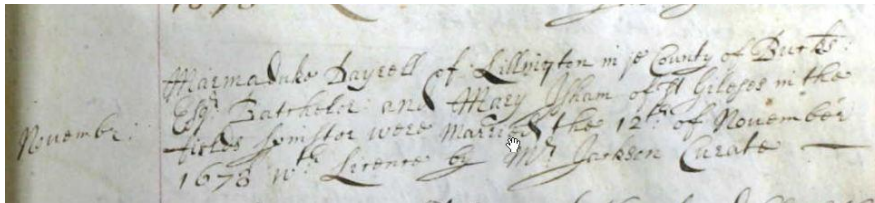 1678
Marmaduke Dayrell of Lillington in ye County of Bucks:
Esqr. Batchelor and Mary Isham of St Gileses in the
November: fields spinstor were Married the 12th of November
1678 wth. Licence by Mr Jackson Curate